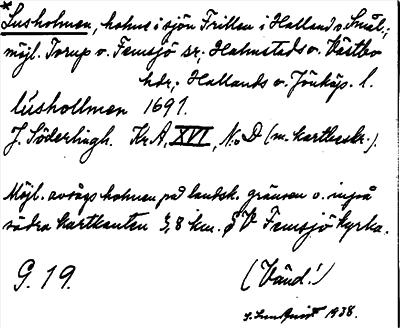 *Lusholmen, holme i sjön Frillen i Halland o. Smål.;
möjl. Torup o. Femsjö sr; Halmstads o. Västbo
hdr; Hallands o. Jönköp. l.
lüshollmen 1691.
J. Söderlingh. Kr.A, XVI, N:o D (m. kartbeskr.).
Möjl. avsågs holmen på landsk. gränsen o. invid
södra kartkanten 3,8 km. S V Femsjö kyrka.
G. 19.
(Vänd!)
1938.